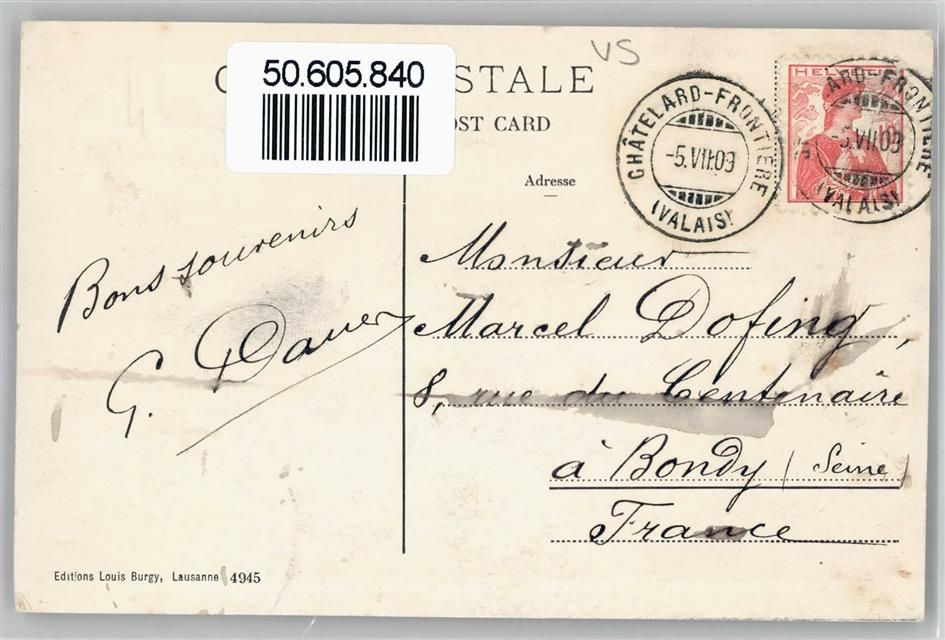 VS
50.605.840
STALE
OST CARD
Adresse
HELVE
CHÂTELARD-FRONTIÈRE
-5.VII.09
(VALAIS)
ARD-FRONTIÈRE
-5.VII.09
(VALAIS)
Bons souvenirs
G.
Monsieur
Marcel Dofing,
8, rue du Centenaire
à Bondy (Seine)
France
Editions Louis Burgy, Lausanne 4945